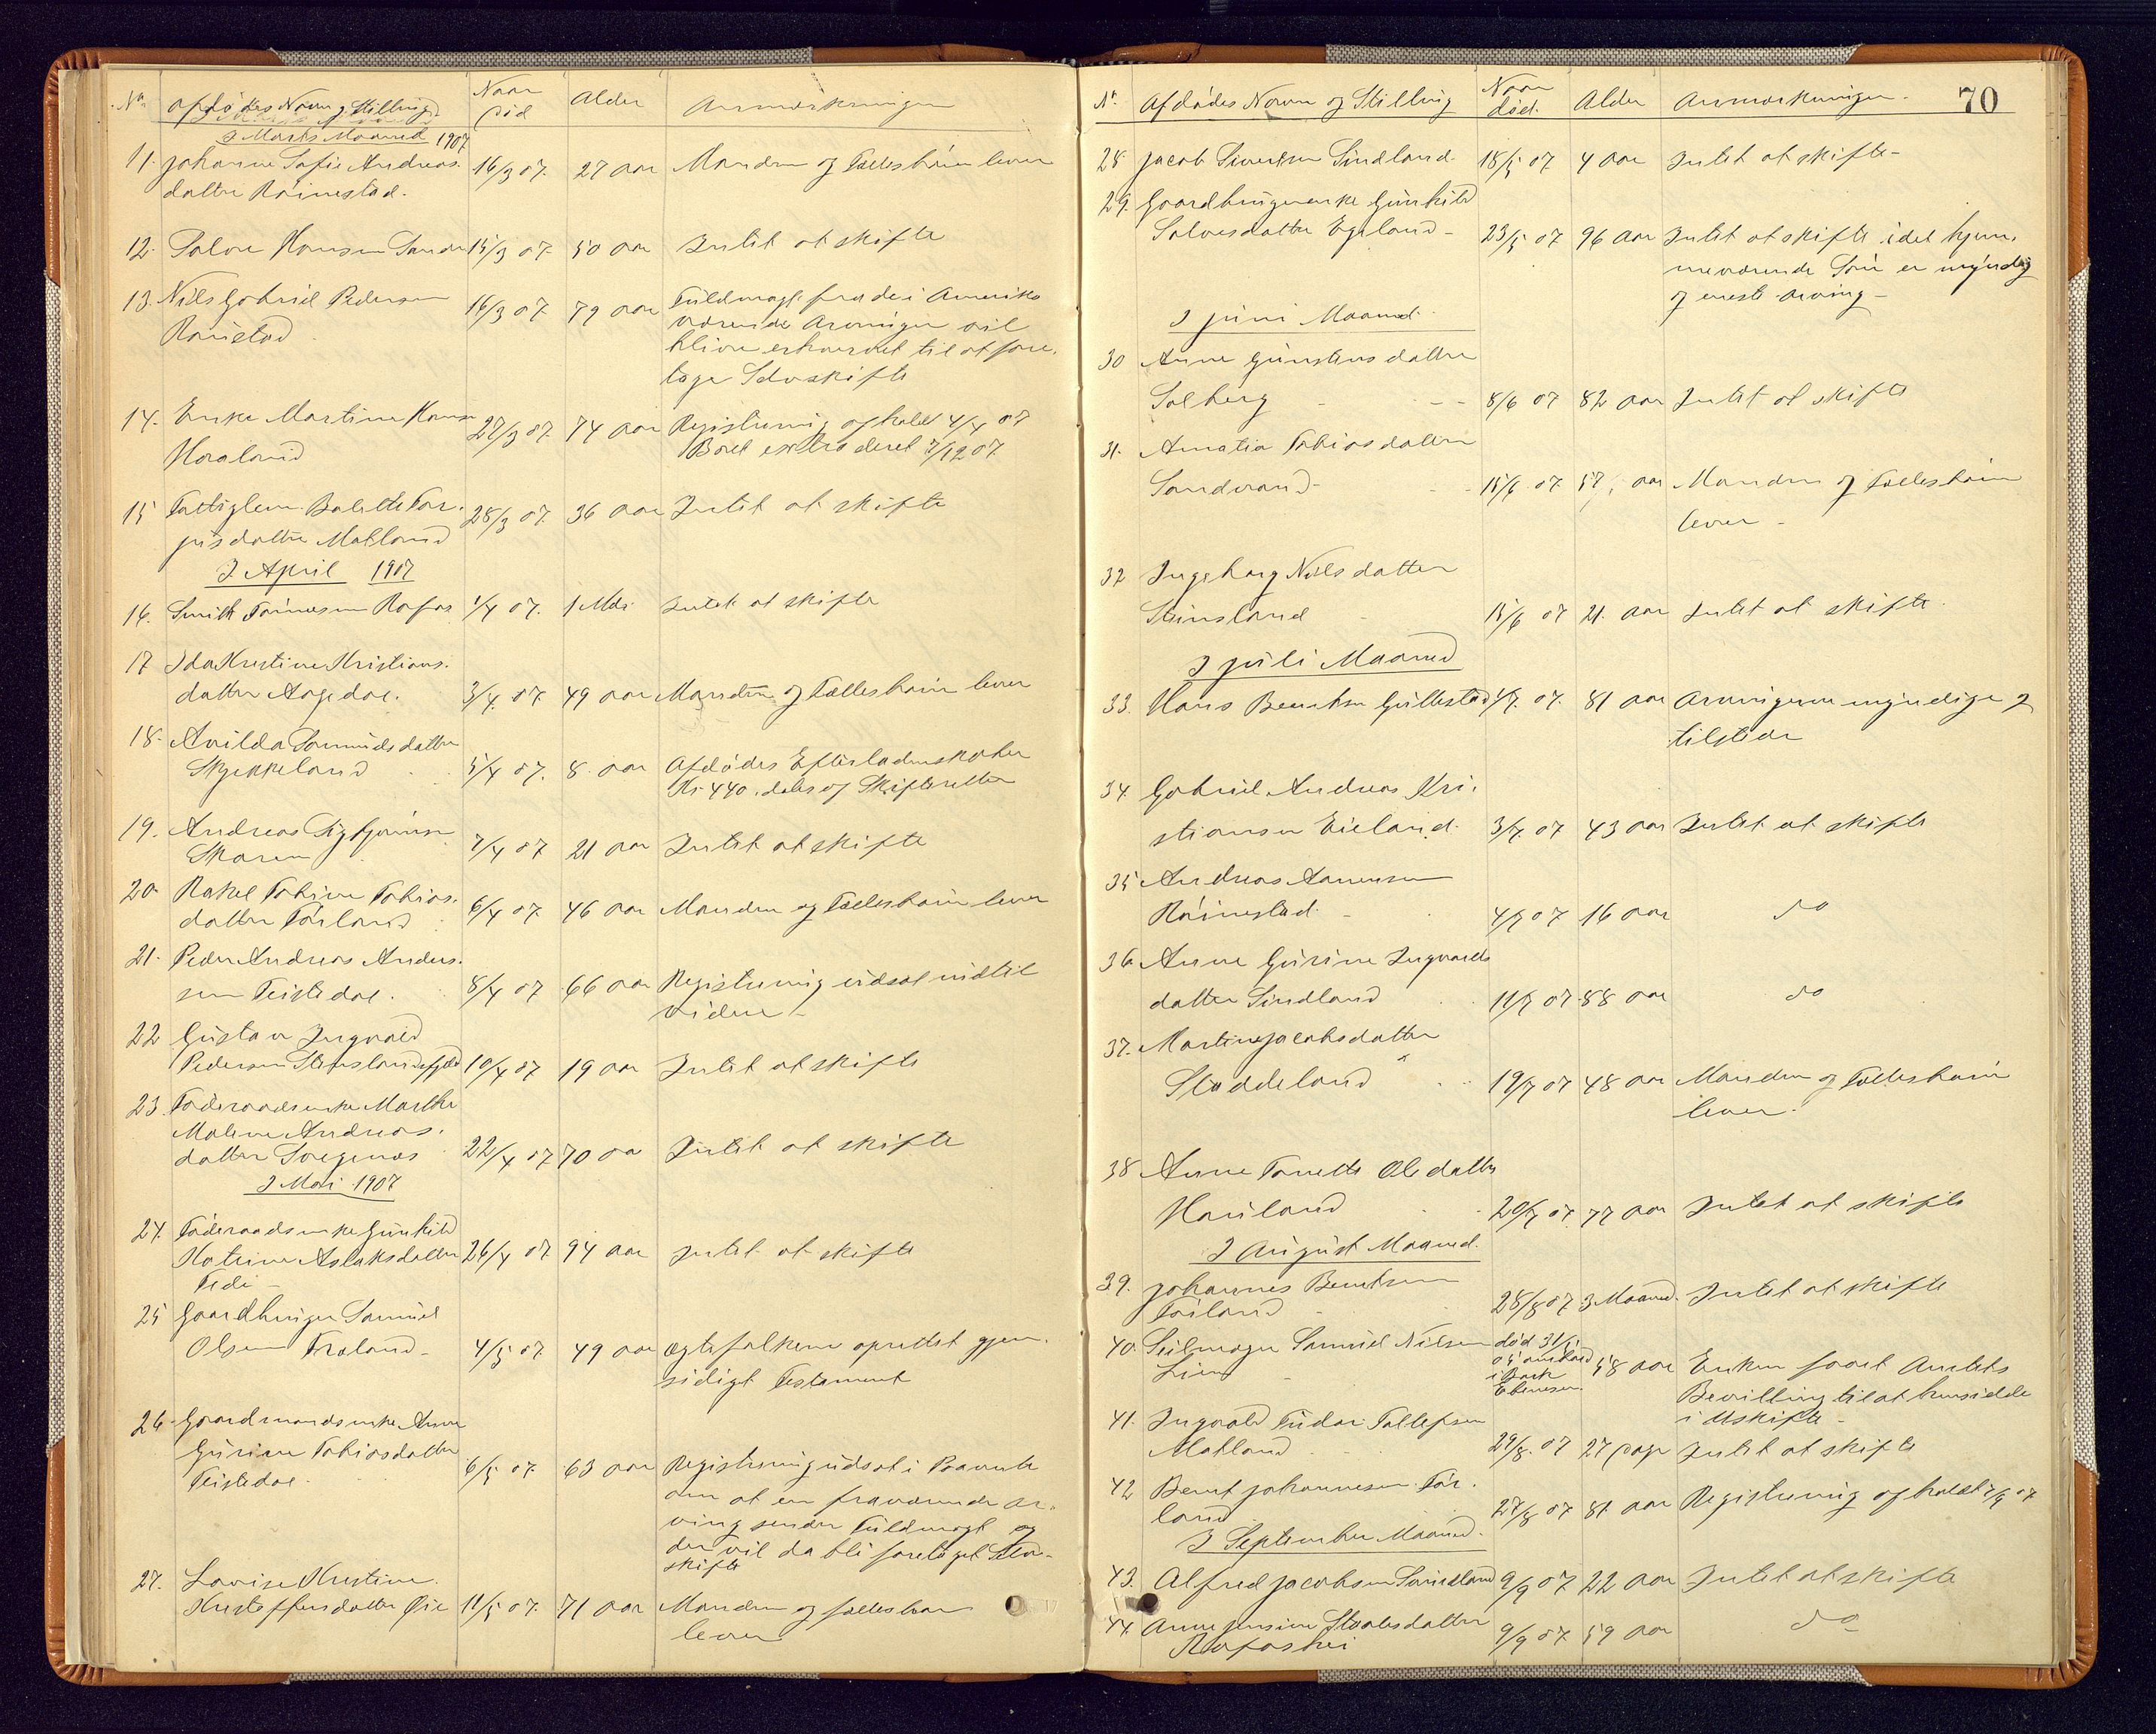 No. Afdødes Navn og Stilling. Naar død Alder Anmærkninger
I Marts Maaned 1907
11. Johanne Sofie Andreas- 16/3 07. 27 aar Manden og Fællesbørn lever
datter Røinestad.
12. Salve Hansen Sande 15/3 07. 50 aar Intet at skifte
13. Nils Gabriel Pedersen 16/3 07 79 aar Fuldmagt fra de i Amerika
Røinestad værende Arvinger vil
blive erhvervet til at fore-
tage Selvskifte
14. Enke Martine Hans- 27/3 07. 74 aar Registrering afholdt 4/4 07
Haaland Boet extraderet 7/12 07.
15 Fattiglem Bolette Tor- 28/3 07. 36 aar Intet at skifte
jusdatter Matland
I April 1907
16. Smith Tønnesen Rafos 1/4 07. 1 Mdr. Intet at skifte
17 Ida Kristine Kristians-
datter Aagedal. 3/4 07. 49 aar Manden og Fællesbørn lever
18. Avilda Samuelsdatter
Skjekkeland 5/4 07. 8 aar Afdødes Efterladenskaber
Kr 440. deles af Skifteretten
19. Andreas Sigbjørnsen 7/4 07 21 aar Intet at skifte
Skaren
20. Rakel Tobine Tobias- 6/4 07. 46 aar Manden og Fællesbørn lever
datter Førland
21. Peder Andreas Anders-
sen Teistedal. 8/4 07 66 aar Registrering udsat indtil
videre -
22 Gustav Ingvald
Pedersen Steinslandsfjeld 10/4 07 19 aar Intet at skifte
23. Føderaadsenke Marthe
Malene Andreas-
datter Svegenæs 22/4 07 70 aar Intet at skifte
I Mai 1907
24. Føderaadsenke Gunhild
Katrine Aslaksdatter 26/4 07. 94 aar Intet at skifte
Fedi -
25 Gaardbruger Samuel
Olsen Træland - 4/5 07 49 aar Ægtefolkene oprettet gjen-
sidigt Testament
26. Gaardmandsenke Anne
Gurine Tobiasdatter 6/5 07. 63 aar Registrering udsat i Paavente
Teistedal om at en fraværende Ar-
ving sender Fuldmagt og
der vil da bli foretaget Selv-
skifte
27. Lovise Kristine
Kristoffersdatter Øie 11/5 07. 71 aar Manden og fællesbørn
lever
Nr. Afdødes Navn og Stilling Naar død. Alder Anmærkninger. 70
28. Jacob Sivertsen Sindland. 18/5 07 4 aar Intet at skifte -
29. Gaardbrugerenke Gunhild
Salvesdatter Egeland - 23/5 07 96 aar Intet at skifte idet hjem-
meværende Søn er myndig
og eneste Arving -
I Juni Maaned.
30 Anne Gunstensdatter
Solberg - 8/6 07 82 aar Intet at skifte
31. Amalia Tobiasdatter
Sandvand - 15/6 07. 57 aar Manden og Fællesbørn
lever -
32 Ingeborg Nilsdatter
Steinsland 15/6 07 21. aar Intet at skifte.
I Juli Maaned
33. Hans Berntsen Gullestad 1/7. 07. 81 aar Arvingerne myndige og
tilstede
34. Gabriel Andreas Kri-
stiansen Eieland. 3/7. 07 43 aar Intet at skifte
35 Andreas Aanensen
Røinestad. - 4/7 07 16 aar do
36 Anne Gurine Ingvalds
datter Sindland 11/7 07. 88 aar do
37. Martine Jacobsdatter
Stoddeland 19/7 07 48 aar Manden og Fællesbørn
lever.
38 Anne Tonette Olsdatter
Hauland 20/7 07. 77 aar Intet at skifte
I August Maaned.
39. Johannes Berntsen
Førland 28/8 07 3 Maaned. Intet at skifte
40. Seilmager Samuel Nilsen død 31/1
Lien 05 ombord 58 aar Enken faaet Amtets
i Bark
Ebenezer Bevilling til at hensidde
i Uskifte -
41. Ingvald Tudor Tollefsen
Matland 29/8. 07 27 dage Intet at skifte
42 Bernt Johannesen Før- 27/8 07 81 aar Registrering afholdt 7/9 07
land
I September Maaned.
43. Alfred Jacobsen Sindland 9/9 07. 22 aar Intet at skifte
44. Anne Jensine Staalesdatter 9/9 07 59 aar do
Rafoshei